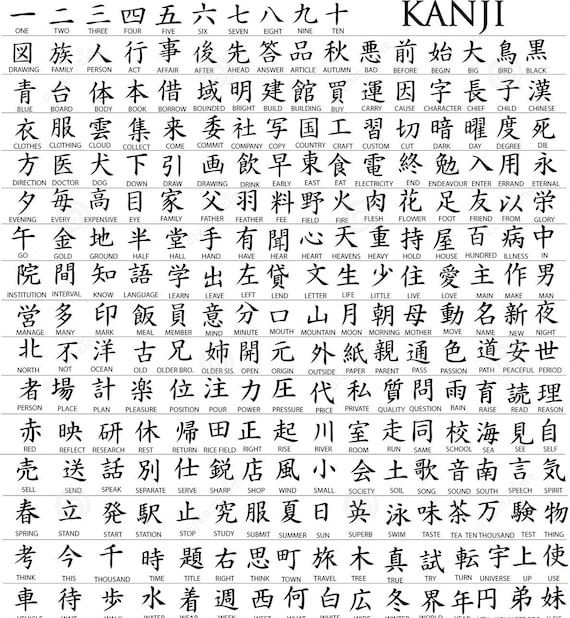 一 二 三 四 五 六 七 八 九 十 KANJI
ONE TWO THREE FOUR FIVE SIX SEVEN EIGHT NINE TEN
図 族 人 行 事 後 先 答 品 秋 悪 前 始 大 鳥 黒
DRAWING FAMILY PERSON ACT AFFAIR AFTER AHEAD ANSWER ARTICLE AUTUMN BAD BEFORE BEGIN BIG BIRD BLACK
青 台 体 本 借 域 明 建 館 買 運 因 字 長 子 漢
BLUE BOARD BODY BOOK BORROW BOUNDED BRIGHT BUILD BUILDING BUY CARRY CAUSE CHARACTER CHEF CHILD CHINESE
衣 服 雲 集 来 委 社 写 国 工 習 切 暗 曜 度 死
CLOTHES CLOTHING CLOUD COLLECT COME COMMIT COMPANY COPY COUNTRY CRAFT CUSTOM CUT DARK DAY DEGREE DIE
方 医 犬 下 引 画 飲 早 東 食 電 終 勉 入 用 永
DIRECTION DOCTOR DOG DOWN DRAW DRAWING DRINK EARLY EAST EAT ELECTRICITY END ENDEAVOUR ENTER ERRAND ETERNAL
夕 毎 高 目 家 父 羽 料 野 火 肉 花 足 友 以 栄
EVENING EVERY EXPENSIVE EYE FAMILY FATHER FEATHER FEE FIELD FIRE FLESH FLOWER FOOT FRIEND FROM GLORY
午 金 地 半 堂 手 有 聞 心 天 重 持 屋 百 病 中
GO GOLD GROUND HALF HALL HAND HAVE HEAR HEART HEAVENS HEAVY HOLD HOUSE HUNDRED ILLNESS IN
院 間 知 語 学 出 左 貸 文 生 少 住 愛 主 作 男
INSTITUTION INTERVAL KNOW LANGUAGE LEARN LEAVE LEFT LEND LETTER LIFE LITTLE LIVE LOVE MAIN MAKE MAN
営 多 印 飯 員 意 分 口 山 月 朝 母 動 名 新 夜
MANAGE MANY MARK MEAL MEMBER MIND MINUTE MOUTH MOUNTAIN MOON MORNING MOTHER MOVE NAME NEW NIGHT
北 不 洋 古 兄 姉 開 元 外 紙 親 通 色 道 安 世
NORTH NOT OCEAN OLD OLDER BRO. OLDER SIS. OPEN ORIGIN OUTSIDE PAPER PARENT PASS PASSION PATH PEACEFUL PERIOD
者 場 計 楽 位 注 力 圧 代 私 質 問 雨 育 読 理
PERSON PLACE PLAN PLEASURE POSITION POUR POWER PRESSURE PRICE PRIVATE QUALITY QUESTION RAIN RAISE READ REASON
赤 映 研 休 帰 田 正 起 川 室 走 同 校 海 見 自
RED REFLECT RESEARCH REST RETURN RICE FIELD RIGHT RISE RIVER ROOM RUN SAME SCHOOL SEA SEE SELF
売 送 話 別 仕 鋭 店 風 小 会 土 歌 音 南 言 気
SELL SEND SPEAK SEPARATE SERVE SHARP SHOP WIND SMALL SOCIETY SOIL SONG SOUND SOUTH SPEECH SPIRIT
春 立 発 駅 止 究 服 夏 日 英 泳 味 茶 万 験 物
SPRING STAND START STATION STOP STUDY SUBMIT SUMMER SUN SUPERB SWIM TASTE TEA TEN THOUSAND TEST THING
考 今 千 時 題 右 思 町 旅 木 真 試 転 宇 上 使
THINK THIS THOUSAND TIME TITLE RIGHT THINK TOWN TRAVEL TREE TRUE TRY TURN UNIVERSE UP USE
車 待 歩 水 着 週 西 何 白 広 冬 界 年 円 弟 妹